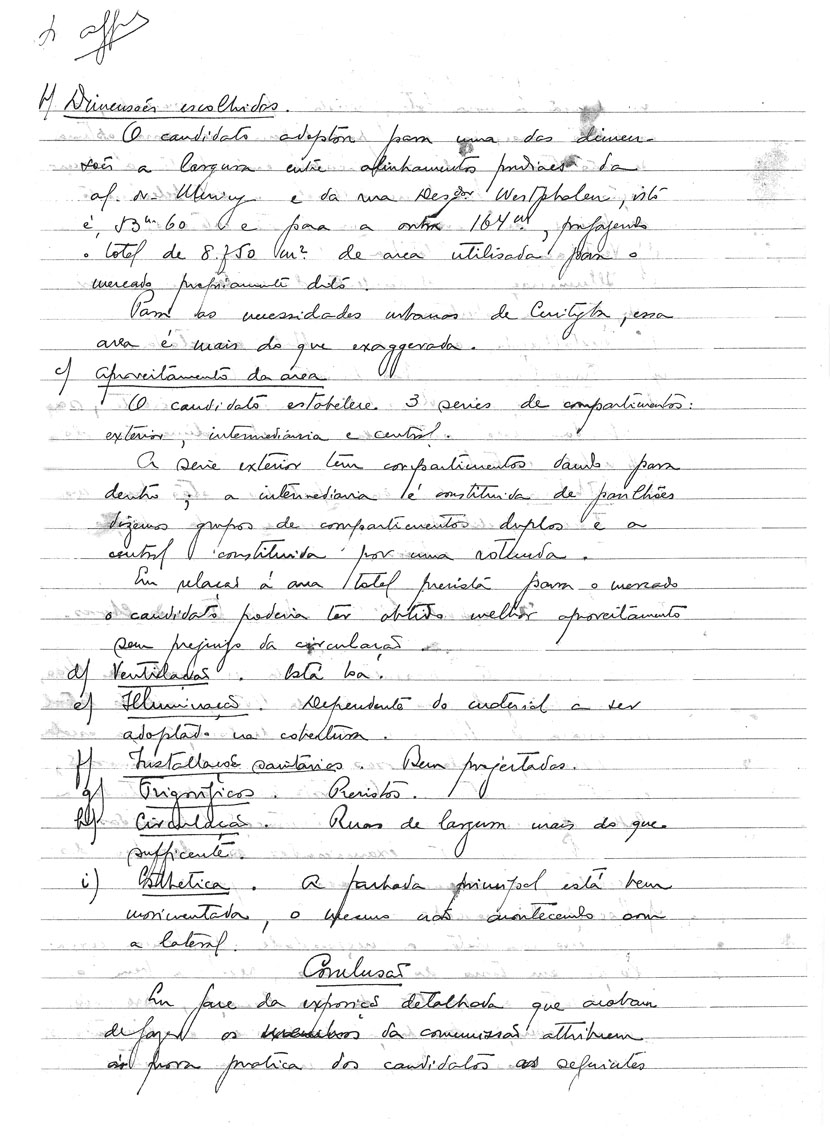 b) Dimensões escolhidas.
O candidato adoptou para uma das dimen-
sões a largura entre alinhamentos prediaes da
e da rua Desdor Westphalen, isto
é, 53m60 e para a outra 164m, prefazendo
o total de 8.750 m2 de area utilisada para o
mercado propriamente dito.
Para as necessidades urbanas de Curityba, essa
area é mais do que exaggerada.
c) Aproveitamento da area
O candidato estabelece 3 series de compartimentos:
exterior, intermediaria e central.
A serie exterior tem compartimentos dando para
dentro; a intermediaria é constituida de pavilhões
dizemos grupos de compartimentos duplos e a
central constituida por uma rotunda.
Em relação á area total prevista para o mercado
o candidato poderia ter obtido melhor aproveitamento
sem prejuizo da circulação.
d) Ventilação. Está bôa.
e) Illuminação. Dependente do material a ser
adoptado na cobertura.
f) Installações sanitarias. Bem projectadas.
g) Frigorificos. Previstos.
h) Circulação. Ruas de largura mais do que
sufficente.
i) Esthetica. A fachada principal está bem
movimentada, o mesmo não acontecendo com
a lateral.
Conclusão
Em face da exposição detalhada que acabam
de fazer os membros da commissão attribuem
á prova pratica dos candidatos as seguintes